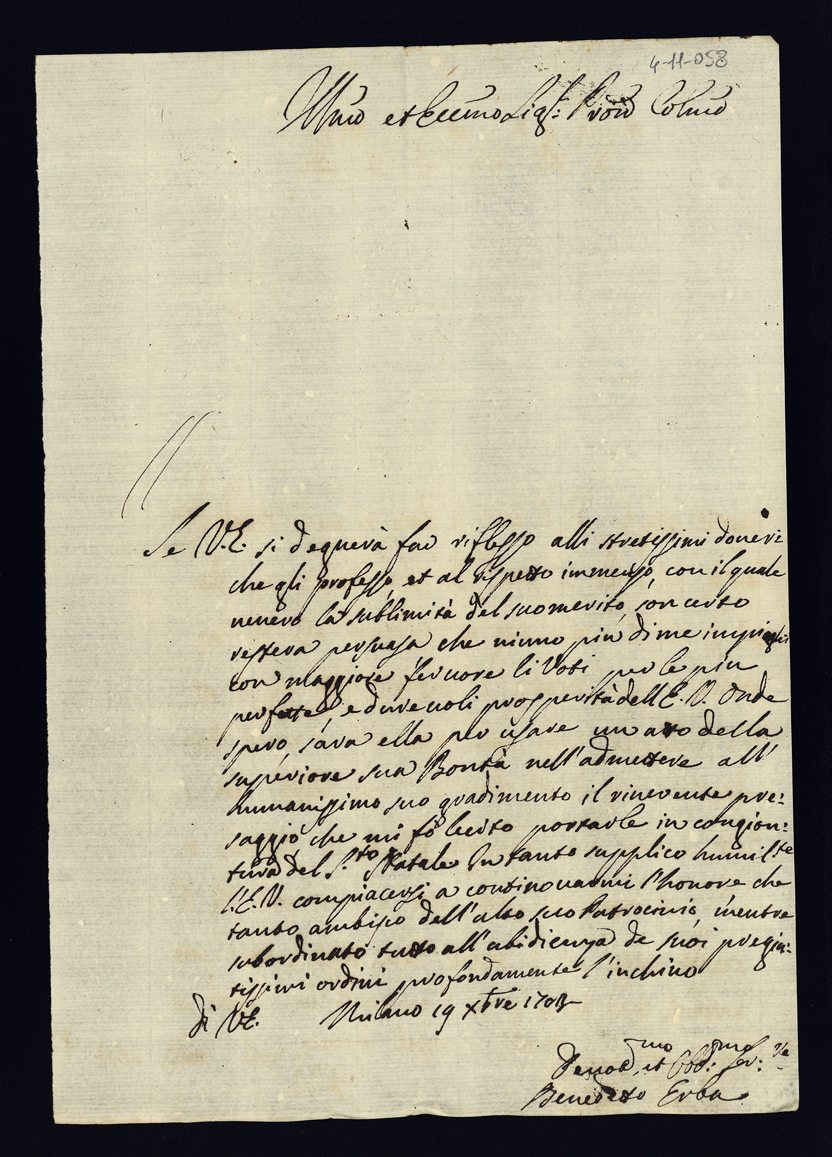 4-11-058
Illmo et Eccmo Sigr: Prõn Colmo
Se V.E. si degnerà far riflesso alli stretissimi doveri
che gli professo, et al rispetto immenso, con il quale
venero la sublimità del suo merito, son certo
restera persuasa che niuno più di me impieghi
con maggiore fervore li Voti per le più
perfette, e durevoli prosperità dell'E.V. Onde
spero, sarà ella per usare un atto della
superiore sua Bontà nell'admettere all'
humanissimo suo gradimento il riverente pre:
saggio che mi fò lecito portarle in congion:
tura del S.to Natale In tanto supplico humilte
l'E.V. compiacersi a continouarmi l'honore che
tanto ambisco dell'alto suo Patrocinio, mentre
subordinato tutto all'ubidienza de suoi pregia:
tissimi ordini profondamente l'inchino
di V.E. Milano 19 Xbre
Devotmo et Obbmo Ser:
Benedetto Erba